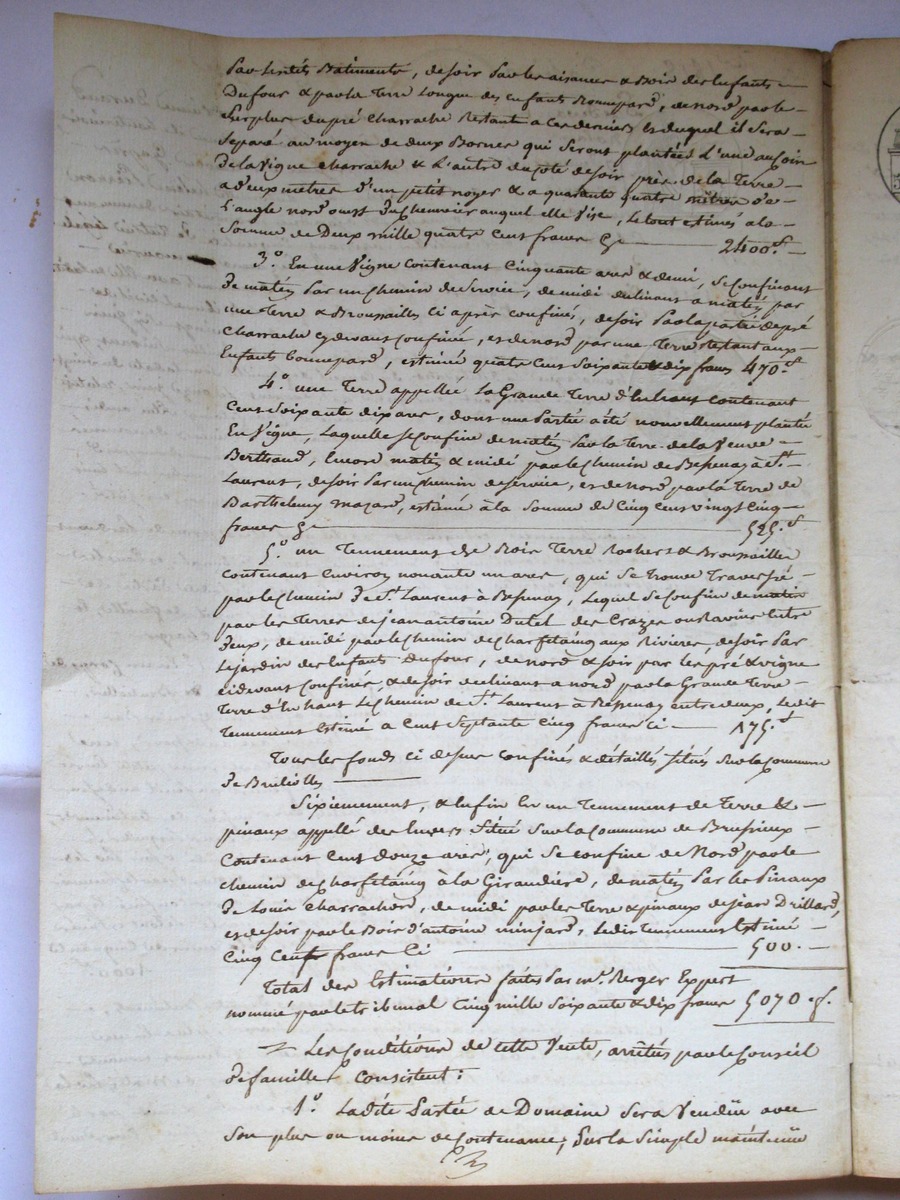 par lesdits Batiments, de soir par les aisances & Bois des Enfants
Dufour & par la Terre Longue des enfants Bonnepard, de nord par le
Surplus du pré Charrache Restant a ces derniers & duquel il sera
Séparé au moyen de deux Bornes qui seront plantées L'une au Coin
de la Vigne Charrache & L'autre du côté de soir près de la Terre
a deux mètres d'un petit noyer & a quarante quatre mètres de
L'angle nord ouest du chenevier auquel elle Vise, le tout estimé a la
Somme de Deux mille quatre Cent francs Cy — 2400.f —
3.º En une Vigne Contenant Cinquante ares & demi, Se Confinant
de matin par un chemin de Service, de midi declinant a matin par
une Terre & Broussailles Ci après Confinés, de soir par la partie de pré
Charrache Cy devant Confiné, et de nord par une Terre Restant aux
Enfants Bonnepard, estimée quatre Cent Soixante & dix francs 470.f
4.º une Terre appellée La Grande Terre d'Enhaut Contenant
Cent Soixante dix ares, dont une Partie a été nouvellement plantée
En Vigne, Laquelle se Confine de matin par la Terre de la Veuve
Berthaud, Encore matin & midi par le Chemin de Bessenay à St.
Laurent, de soir par un chemin de Service, et de nord par la Terre de
Barthelemy Mazard, estimée à la Somme de Cinq Cent Vingt Cinq
francs Cy — 525.f
5.º un Tennement de Bois Terre Rochers & Broussailles
Contenant Environ nonante un ares, qui se trouve Traversé
par le Chemin de St. Laurent à Bessenay, Lequel se Confine de matin
par les Terres de jean antoine Dutel des Crazes ou Ravins Entre
deux, de midi par le Chemin de Charfetaing aux Rivières, de soir par
Le jardin des Enfants Dufour, de nord & soir par les pré & vigne
Ci devant Confinés, & de soir declinant a nord par la Grande Terre
Terre d'En haut Le Chemin de St. Laurent à Bessenay entre deux, Le dit
Tennement Estimé a Cent Septante Cinq francs Ci — 175.f
Tous les fonds ci dessus Confinés & détaillés Situés Sur la Commune
de Brullioles —
Sixiemement, & Enfin En un Tennement de Terre &
pinaux appellé des Envers Situé Sur la Commune de Brussieux
Contenant Cent douze ares, qui se Confine de Nord par le
chemin de Charfetaing à la Giraudière, de matin par les Pinaux
de Louis Charrachon, de midi par les Terre & pinaux de jean Drillard,
et de soir par le Bois d'antoine minjard, Ledit Tennement Estimé
Cinq Cent francs Ci — 500. —
Total des Estimations faites Par Mr. Berger Expert
nommé par le tribunal Cinq mille Soixante & dix francs 5070 f.
Les Conditions de cette Vente, arrêtées par le Conseil
de famille Consistent:
1.º Ladite Partie de Domaine Sera Vendüe avec
Son plus ou moins de Contenance, Sur la Simple maintenüe